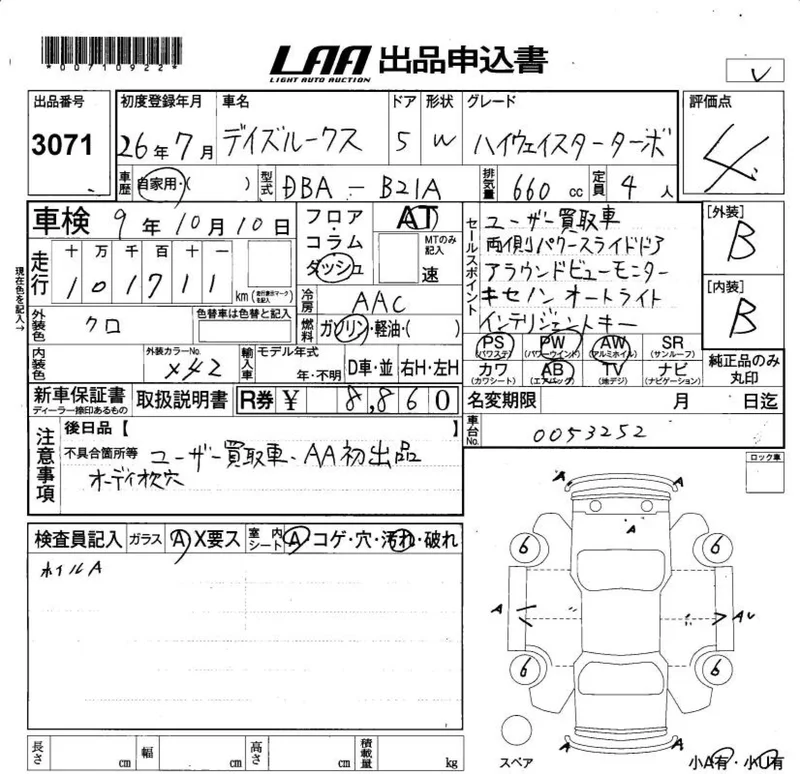 *00710922*
LAA 出品申込書
LIGHT AUTO AUCTION
✓
出品番号 初度登録年月 車名 ドア 形状 グレード 評価点
3071 26年7月 デイズルークス 5 W ハイウェイスターターボ 4
車歴 自家用・( ) 型式 DBA-B21A 排気量 660cc 定員 4人
車検 9年10月10日 フロア・コラム・ダッシュ AT MTのみ記入 速
セールスポイント ユーザー買取車
両側パワースライドドア
アラウンドビューモニター
キセノン オートライト
インテリジェントキー
[外装] B
[内装] B
現在色を記入→
走行 十 万 千 百 十 一
101711 km (走行表示マークを記入)
冷房 AAC
燃料 ガソリン・軽油・( )
外装色 クロ 色替車は色替と記入
内装色 外装カラーNo. X42 輸入車 モデル年式 年・不明 D車・並 右H・左H
PS (パワステ) PW (パワーウインド) AW (アルミホイル) SR (サンルーフ)
カワ (カワシート) AB (エアバッグ) TV (地デジ) ナビ (ナビゲーション)
純正品のみ丸印
新車保証書 ディーラー捺印あるもの 取扱説明書 R券 ¥ 8,860
名変期限 月 日迄
車台No. 0053252
注意事項 後日品【 】
不具合箇所等 ユーザー買取車、AA初出品
オーディオ欠穴
ロック車
検査員記入 ガラス A X要ス 室内シート A コゲ・穴・汚れ・破れ
ホイルA
A A
A
6 6
A A U
6 6
A A
スペア
小A有・小U有
長さ cm 幅 cm 高さ cm 積載量 kg